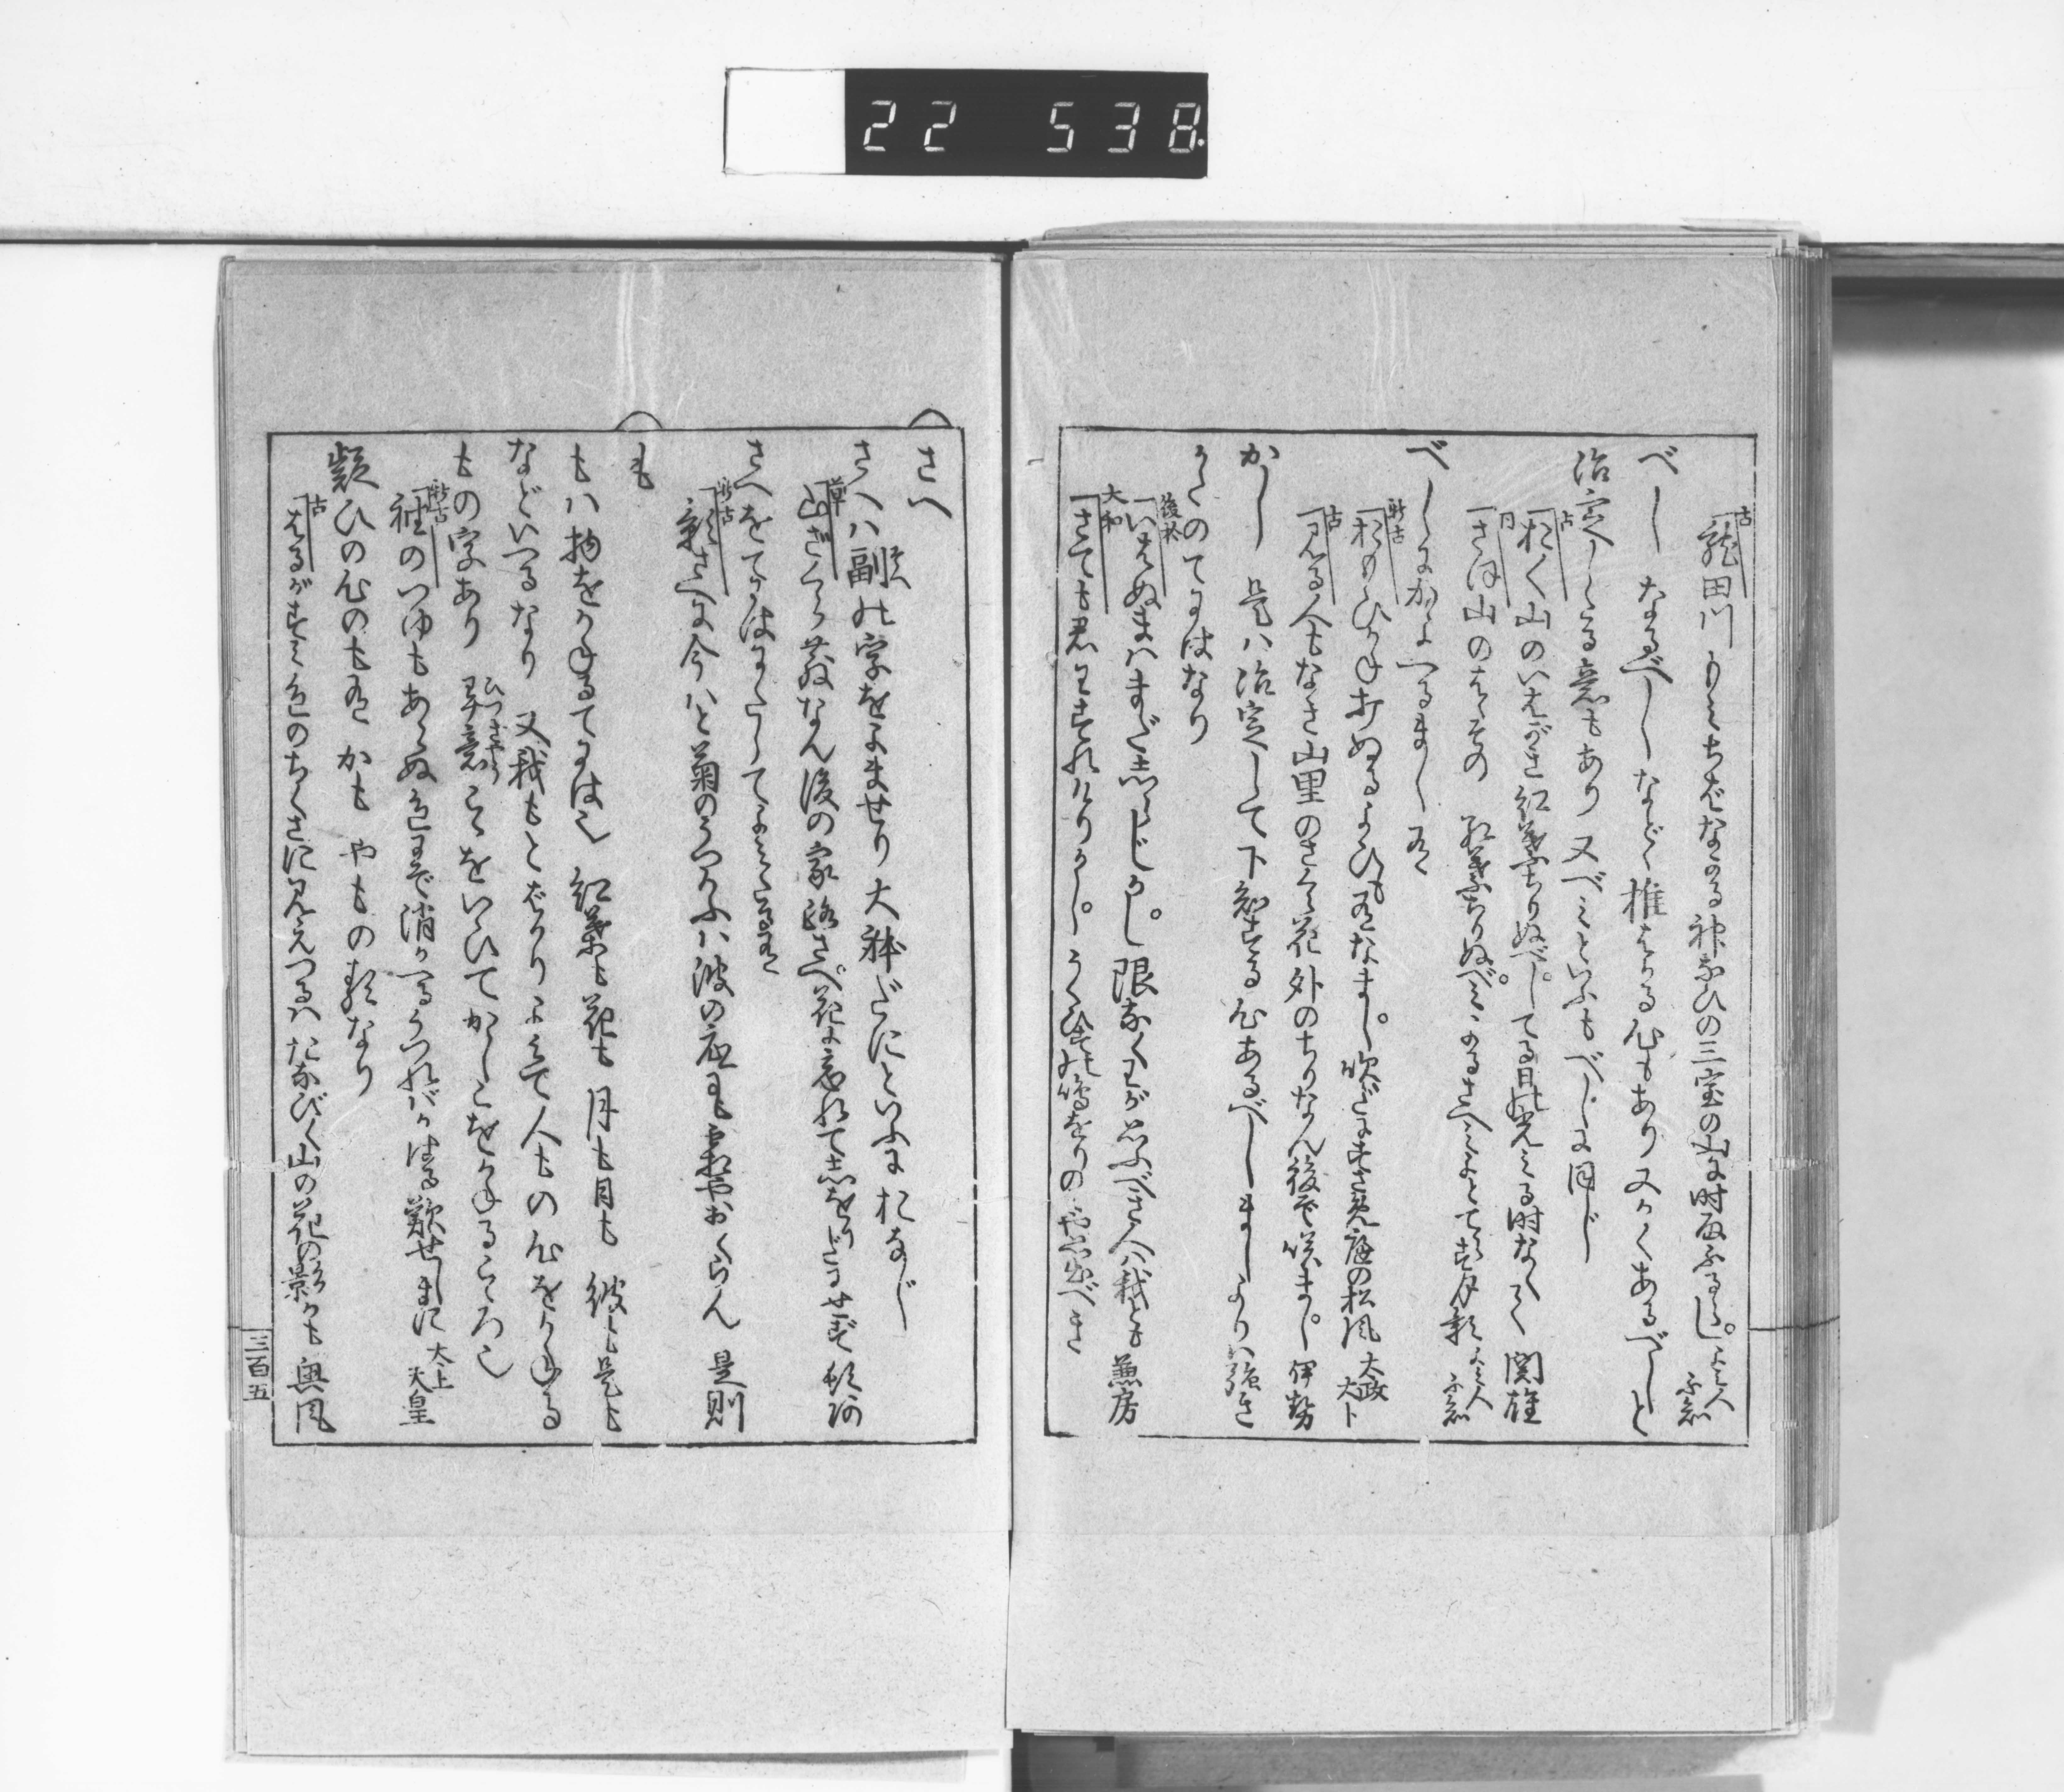 22 538
古
龍田川もみぢばながる神なびの三室の山に時雨ふるらし よミ人不知
べし なるべしなどゝ推はかる心もあり又かくあるべしと
治定しくる意もあり又べミといふもべしに同じ
古
おく山のいはがき紅葉ちりぬべしてる日の光ミる時なくて 関雄
同
さほ山のはゝその紅葉ちりぬべミよるさへミよとてらす月影 よミ人不知
べしにかよへるまし有
新古
吹だにすさめ庭の松風 太政大卜
古
見る人もなき山里のさくら花外のちりなん後ぞ咲まし 伊勢
かし 是ハ治定して下知する心あるべしましよりハ強き
かたのてにはなり
後拾
いはぬまハまだしらじかし限なくわが思ふべき人ハ我とも 兼房
大和
さても君わすれけりかしうぐひすの鳴をりのミや思出べき
さへ
さへハ副の字をよませり大躰だにといふにおなじ
草
山ざくら散なん後の家路さへ花に忘れてしをりだにせず 頓阿
さへをてにはにしてよミたる有
新古
影さへに今ハと菊のうつろふハ波の底にも霜やおくらん 是則
も
もハ物をかねるてには也 紅葉も花も 月も日も 彼も是も
などいへるなり 又我もとばかりよミて人もの心をかねる
もの字あり 畢竟こゝをいひてかしこをかねるこゝろ也
新古
袖のつゆもあらぬ色にぞ消かへるうつれバかはる歎せしまに 太上天皇
歎ひの心のも有 かも やもの類なり
古
はるがすミ色のちくさに見えつるハたなびく山の花の影かも 興風
三百五